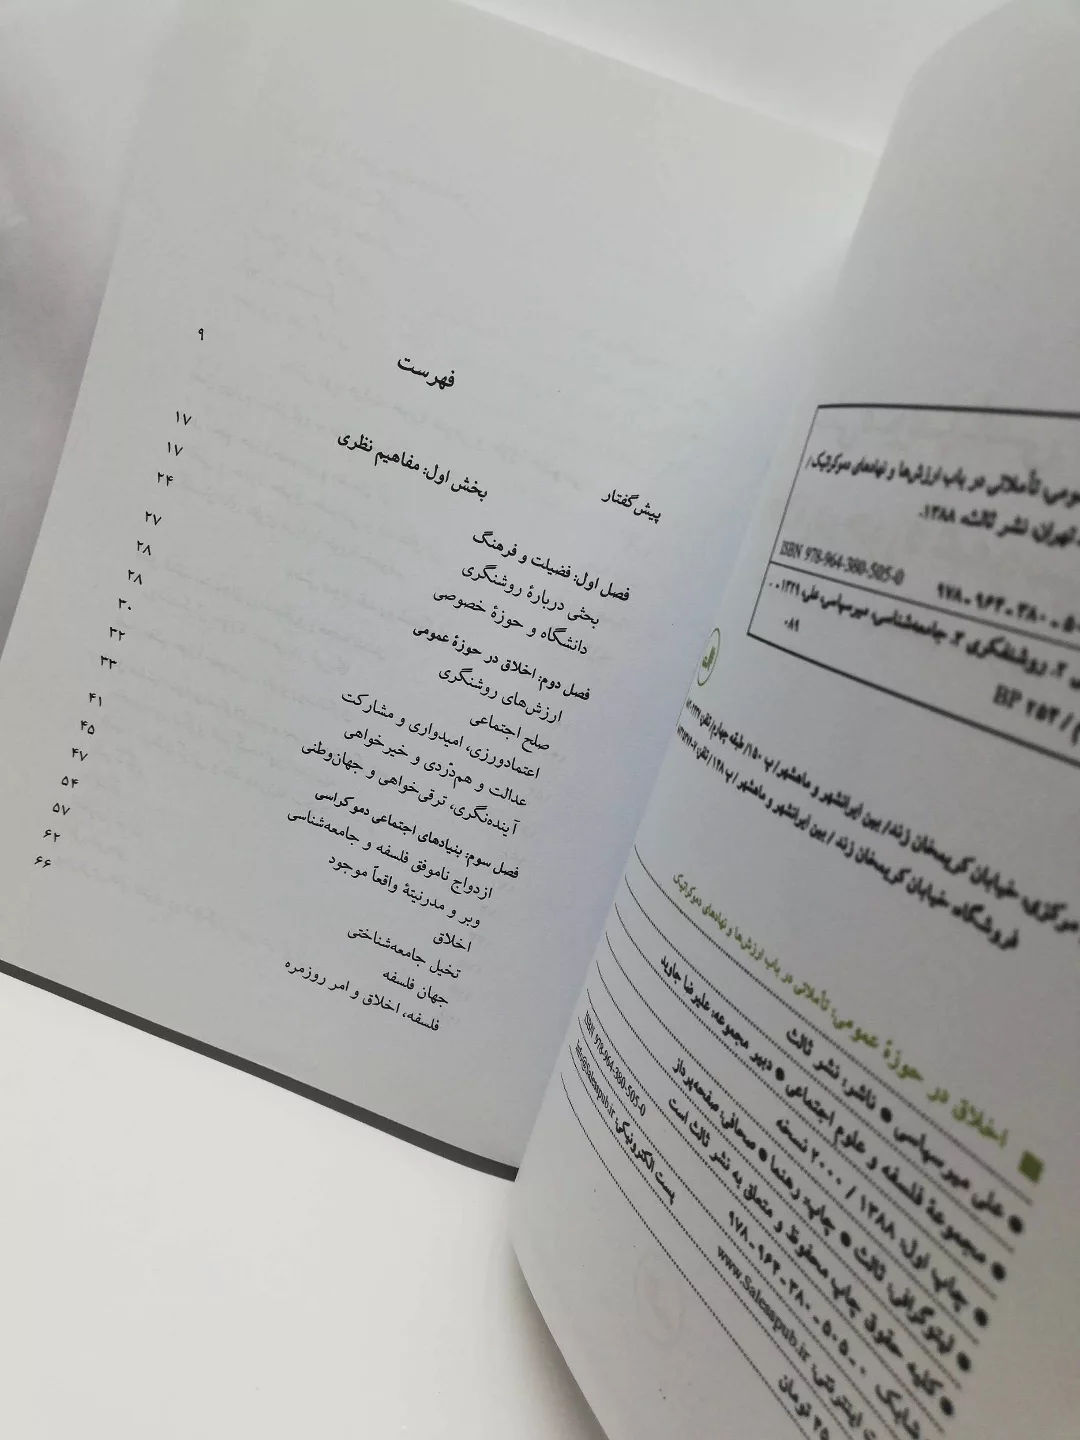 ـومی، تأملاتی در باب ارزش‌ها و نهادهای دموکراتیک/
تهران: نشر ثالث، ۱۳۸۸.
ISBN 978-964-380-505-0
۹۷۸ - ۹۶۴ - ۳۸۰ - ۵۰
۲. روشنفکری ۳. جامعه‌شناسی، میرسپاسی، علی، ۱۳۲۹ - .
۰۸۹
BP ۲۵۴ /
مرکزی: خیابان کریمخان زند/ بین ایرانشهر و ماهشهر/ پ ۱۵۰/ طبقه چهارم/ تلفن:
فروشگاه: خیابان کریمخان زند / بین ایرانشهر و ماهشهر/ پ ۱۴۸ / تلفن:
■ اخلاق در حوزهٔ عمومی: تأملاتی در باب ارزش‌ها و نهادهای دموکراتیک
● علی میرسپاسی ● ناشر: نشر ثالث
● مجموعهٔ فلسفه و علوم اجتماعی ● دبیر مجموعه: علیرضا جاوید
● چاپ اول: ۱۳۸۸ / ۲۰۰۰ نسخه
● لیتوگرافی: ثالث ● چاپ: رهنما ● صحافی: صفحه‌پرداز
● کلیه حقوق چاپ محفوظ و متعلق به نشر ثالث است
شابک ۰ - ۵۰۵ - ۳۸۰ - ۹۶۴ - ۹۷۸ ISBN 978-964-380-505-0
اینترنتی: www.Salesspub.ir پست الکترونیکی: info@Salesspub.ir
تومان
فهرست
پیش‌گفتار ۹
بخش اول: مفاهیم نظری
فصل اول: فضیلت و فرهنگ ۱۷
بحثی دربارهٔ روشنگری ۱۷
دانشگاه و حوزهٔ خصوصی ۲۴
فصل دوم: اخلاق در حوزهٔ عمومی ۲۷
ارزش‌های روشنگری ۲۸
صلح اجتماعی ۲۸
اعتمادورزی، امیدواری و مشارکت ۳۰
عدالت و هم‌دَردی و خیرخواهی ۳۲
آینده‌نگری، ترقی‌خواهی و جهان‌وطنی ۳۳
فصل سوم: بنیادهای اجتماعی دموکراسی ۴۱
ازدواج ناموفق فلسفه و جامعه‌شناسی ۴۵
وبر و مدرنیتهٔ واقعاً موجود ۴۷
اخلاق ۵۴
تخیل جامعه‌شناختی ۵۷
جهان فلسفه ۶۲
فلسفه، اخلاق و امر روزمره ۶۶